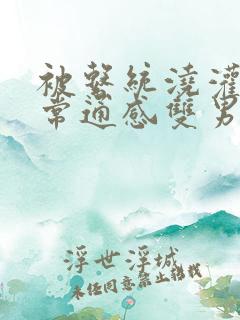 被繫統澆灌
常適感雙男
浮世浮城
未經同意禁止轉載